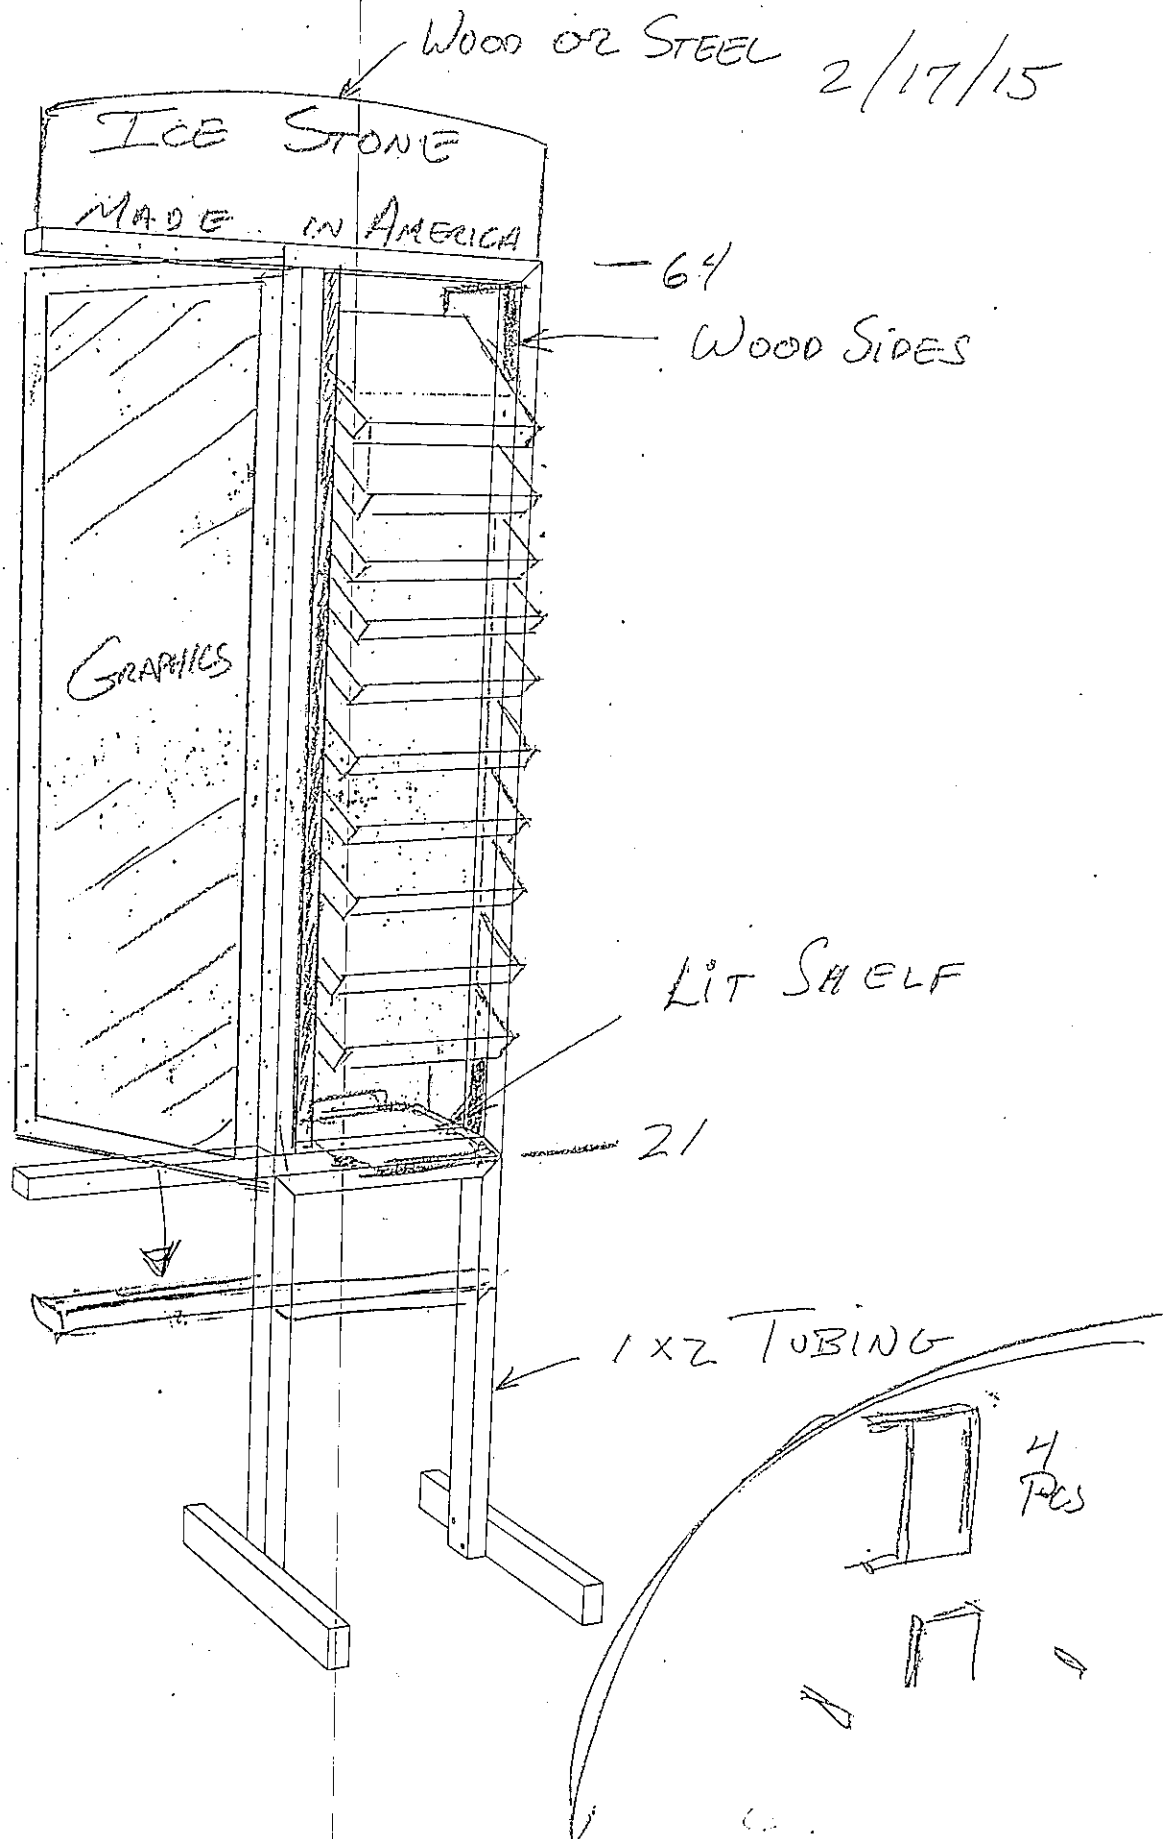 WOOD OR STEEL
2/17/15
ICE STONE
MADE IN AMERICA
—64
WOOD SIDES
GRAPHICS
LIT SHELF
21
1X2 TUBING
4
PCS